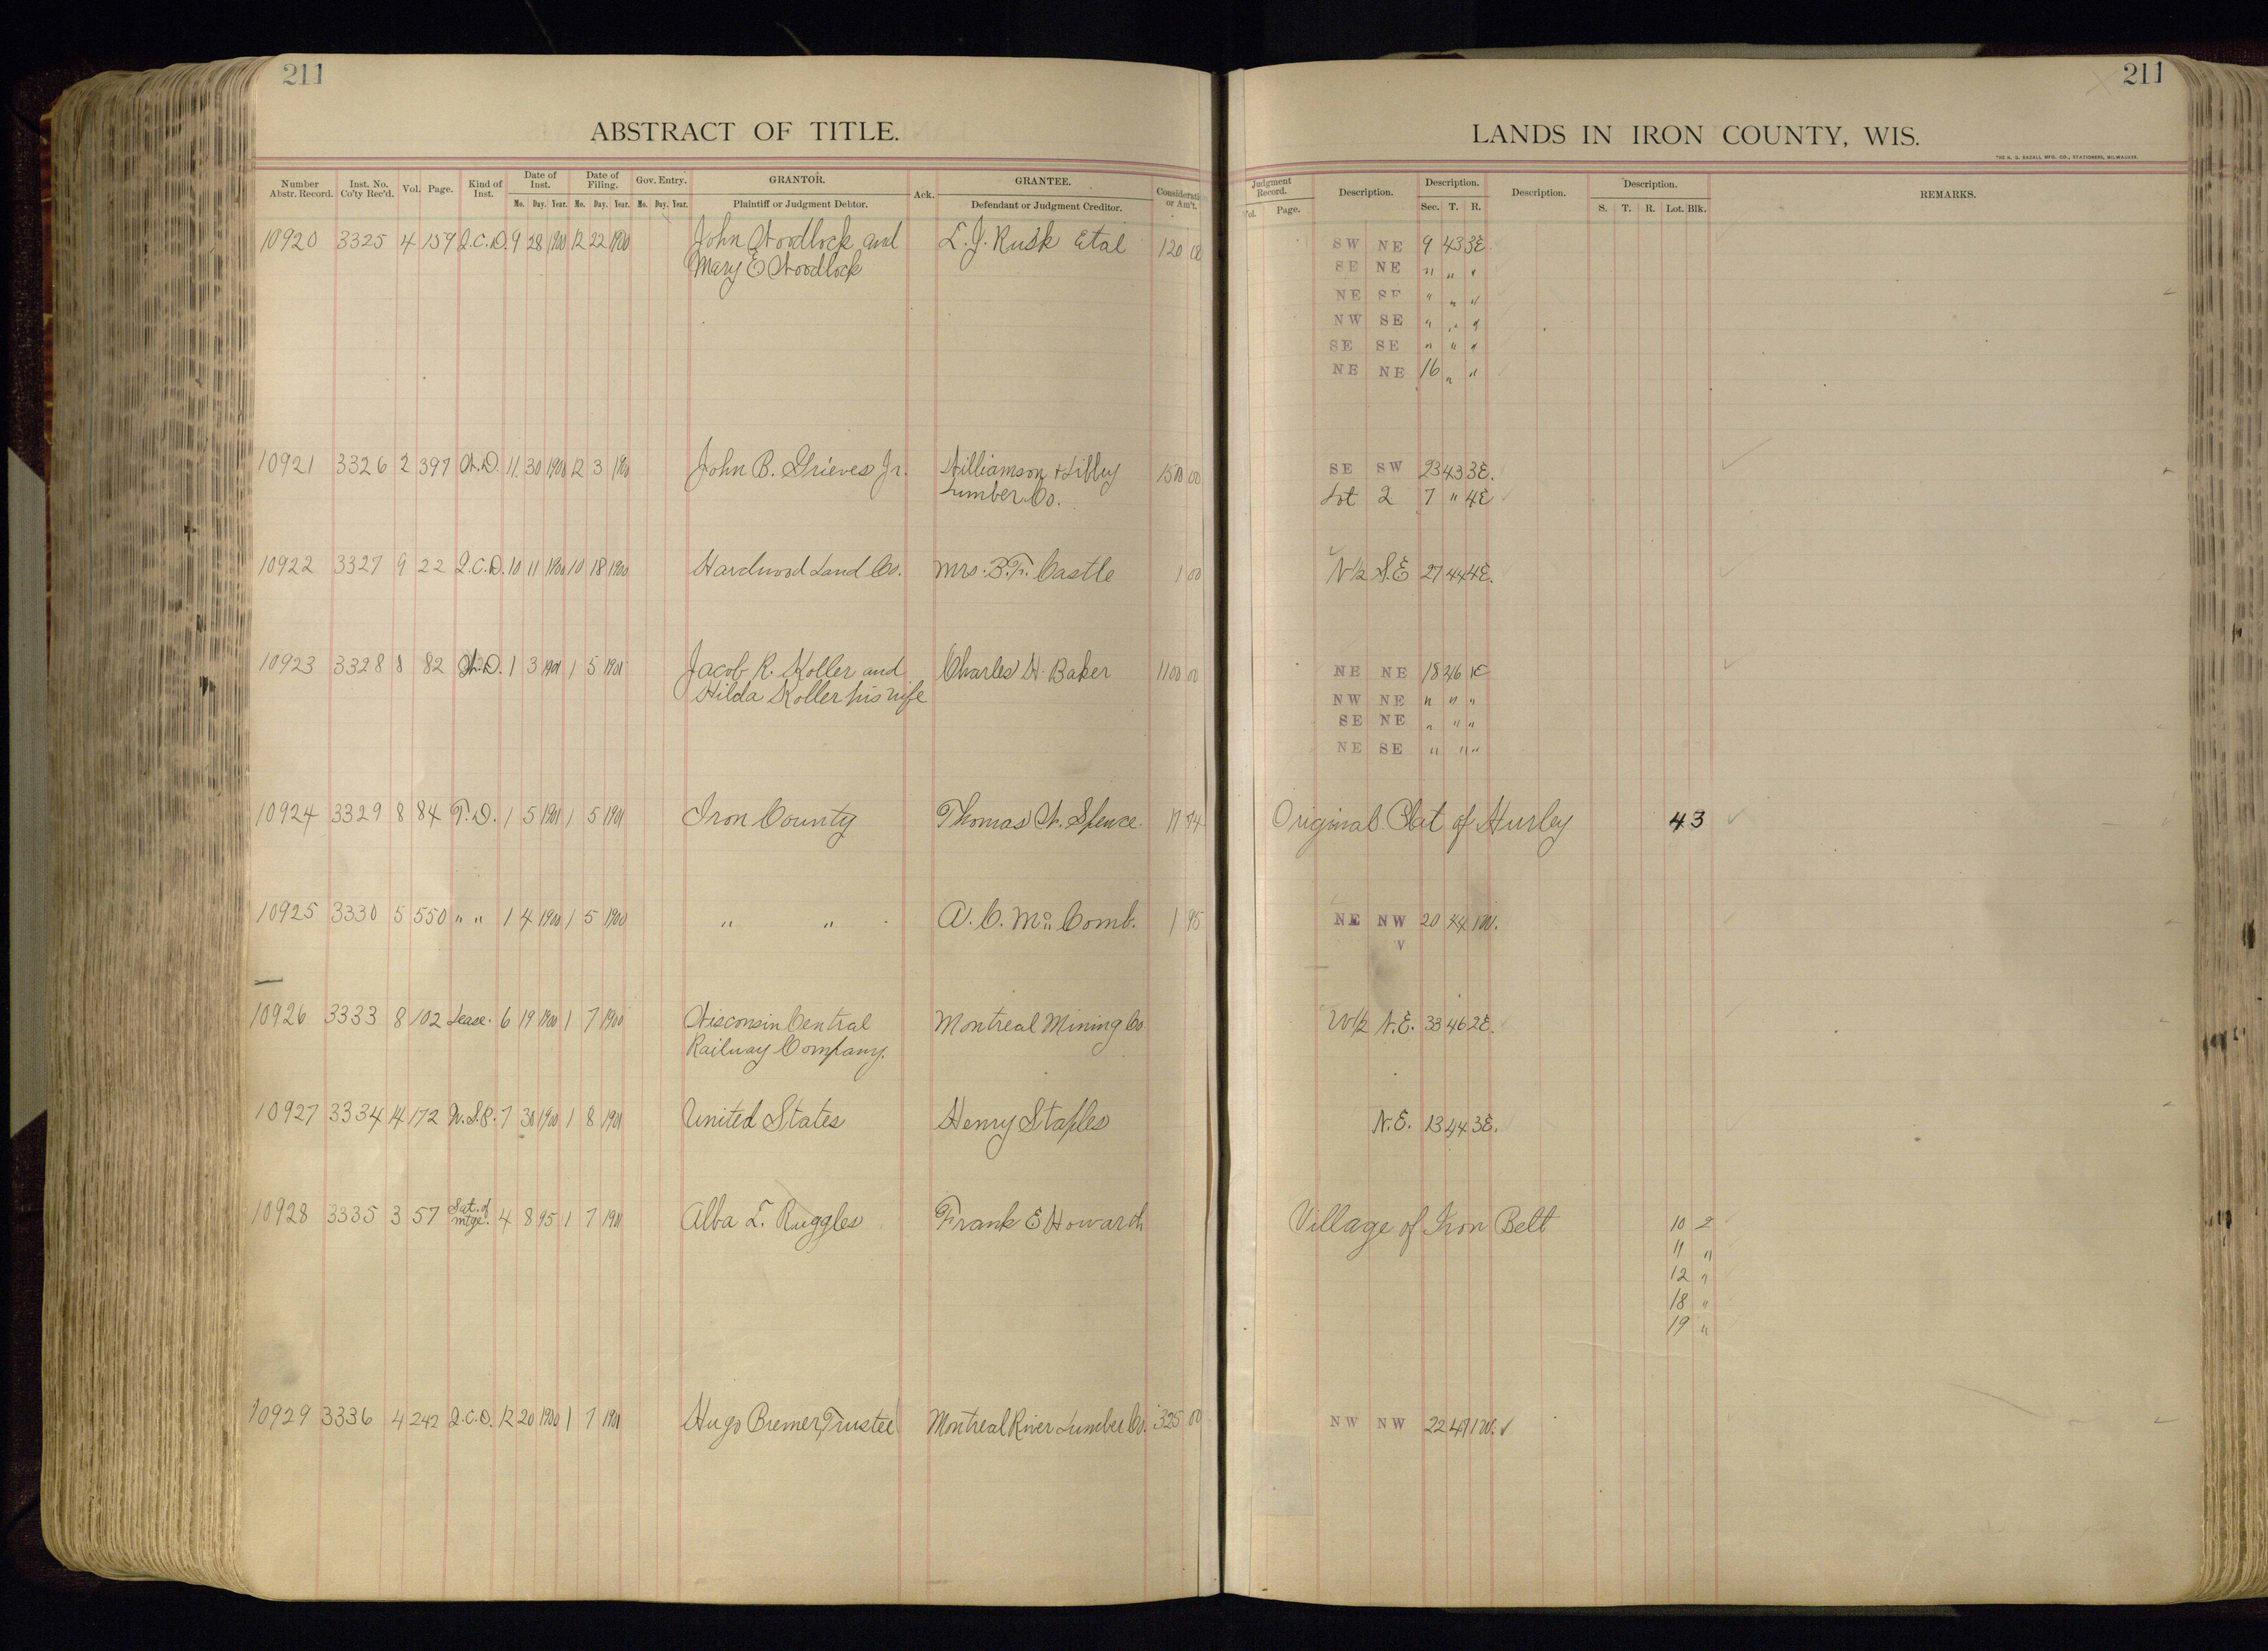 211
ABSTRACT OF TITLE.
Number Abstr. Record. Inst. No. Co'ty Rec'd. Vol. Page. Kind of Inst. Date of Inst. Mo. Day. Year. Date of Filing. Mo. Day. Year. Gov. Entry. Mo. Day. Year. GRANTOR. Plaintiff or Judgment Debtor. Ack. GRANTEE. Defendant or Judgment Creditor. Consideration or Am't.
10920 3325 4 159 Q.C.D. 9 28 1900 12 22 1900 John Woodlock and L. J. Rusk Etal 120 00
Mary E Woodlock
10921 3326 2 397 W.D. 11 30 1900 12 3 1900 John B. Grieves Jr. Williamson & Libbey 1500 00
Lumber Co.
10922 3327 9 22 Q.C.D. 10 11 1900 10 18 1900 Hardwood Land Co. Mrs. B.F. Castle 1 00
10923 3328 8 82 W.D. 1 3 1901 1 5 1901 Jacob R. Koller and Charles H. Baker 1100 00
Hilda Koller his wife
10924 3329 8 84 T.D. 1 5 1901 1 5 1901 Iron County Thomas W. Spence.
10925 3330 5 550 " " 1 4 1900 1 5 1900 " " A. C. McComb. 1 95
10926 3333 8 102 Lease. 6 19 1900 1 7 1900 Wisconsin Central Montreal Mining Co
Railway Company.
10927 3334 4 172 7 30 1900 1 8 1901 United States Henry Staples
10928 3335 3 57 Sat. of mtge. 4 8 95 1 7 1901 Alba L. Ruggles Frank E Howarth
10929 3336 4 242 Q.C.D. 12 20 1900 1 7 1901 Hugo Bremer, Trustee Montreal River Lumber Co. 325 00
211
LANDS IN IRON COUNTY, WIS.
THE H. G. RAZALL MFG. CO., STATIONERS, MILWAUKEE.
Judgment Record. Vol. Page. Description. Description. Sec. T. R. Description. Description. S. T. R. Lot. Blk. REMARKS.
SW NE 9 43 3E.
SE NE " " "
NE SE " " "
NW SE " " "
SE SE " " "
NE NE 16 " "
SE SW 23 43 3E.
Lot 2 7 " 4E
N1/2 S.E 27 44 4E.
NE NE 18 46 1E
NW NE " " "
SE NE " " "
NE SE " " "
Original Plat of Hurley 4 3
NE NW 20 44 1W.
W1/2 N.E. 33 46 2E.
N.E. 13 44 3E.
Village of Iron Belt 10 2
11 "
12 "
18 "
19 "
NW NW 22 47 1W.